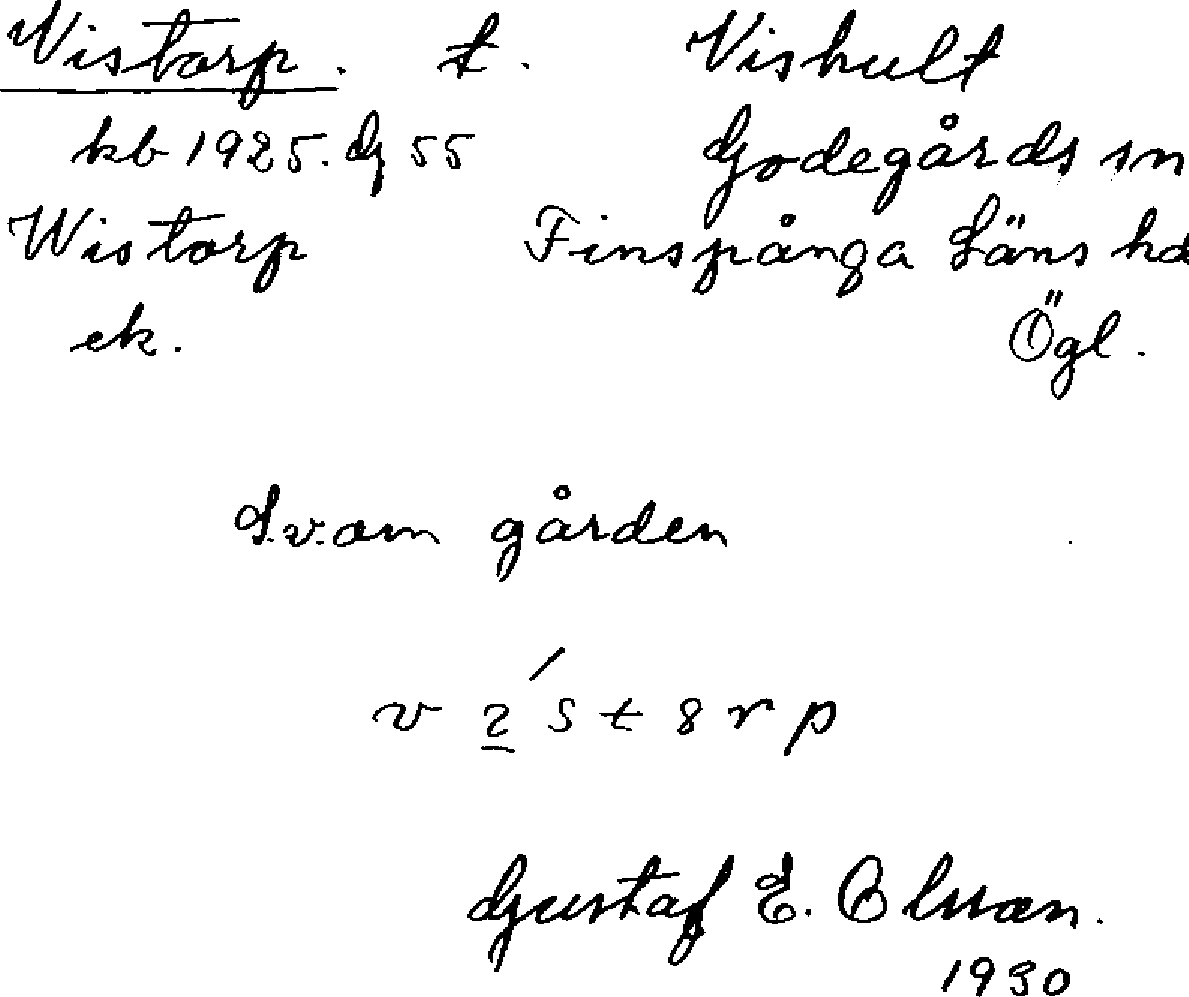 Vistorp. t. Vishult
kb 1925. G 55 Godegårds sn
Wistorp Finspånga Läns hd
ek. Ögl.
S.v.om gården
Gustaf E. Olsson.
1930